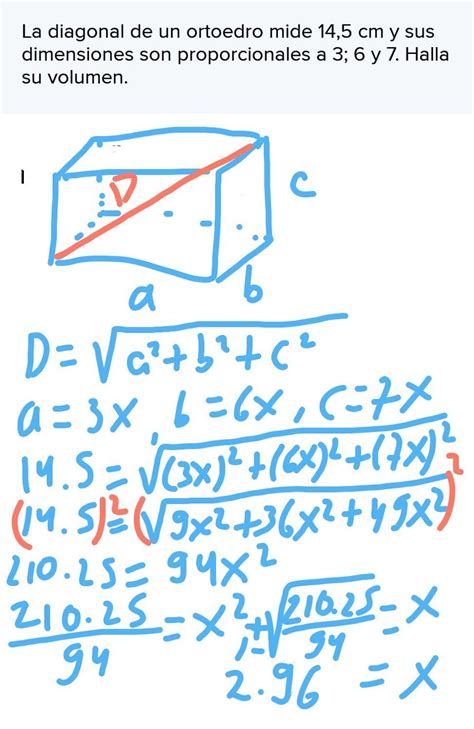 La diagonal de un ortoedro mide 14,5 cm y sus
dimensiones son proporcionales a 3; 6 y 7. Halla
su volumen.
1
D
c
a b
D = √a²+b²+c²
a = 3x, b = 6x, c = 7x
14.5 = √(3x)²+(6x)²+(7x)²
(14.5)² = (√9x²+36x²+49x²)²
210.25 = 94x²
210.25/94 = x², ±√210.25/94 = x
2.96 = x